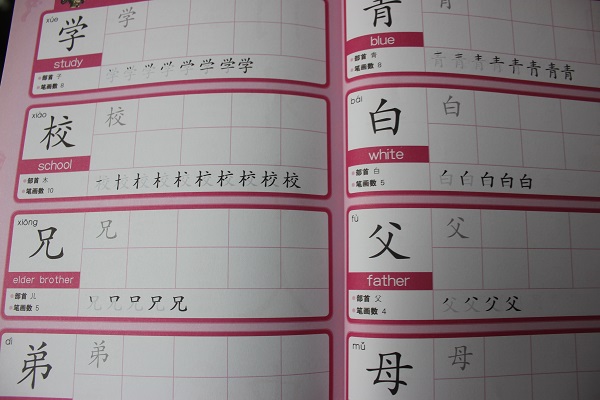 xué
学
学
study
部首 子
笔画数 8
学学学学学学学学
xiào
校
校
school
部首 木
笔画数 10
校校校校校校校校校校
xiōng
兄
兄
elder brother
部首 儿
笔画数 5
兄兄兄兄兄
dì
弟
弟
青
青
blue
部首 青
笔画数 8
青青青青青青青青
bái
白
白
white
部首 白
笔画数 5
白白白白白
fù
父
父
father
部首 父
笔画数 4
父父父父
mǔ
母
母